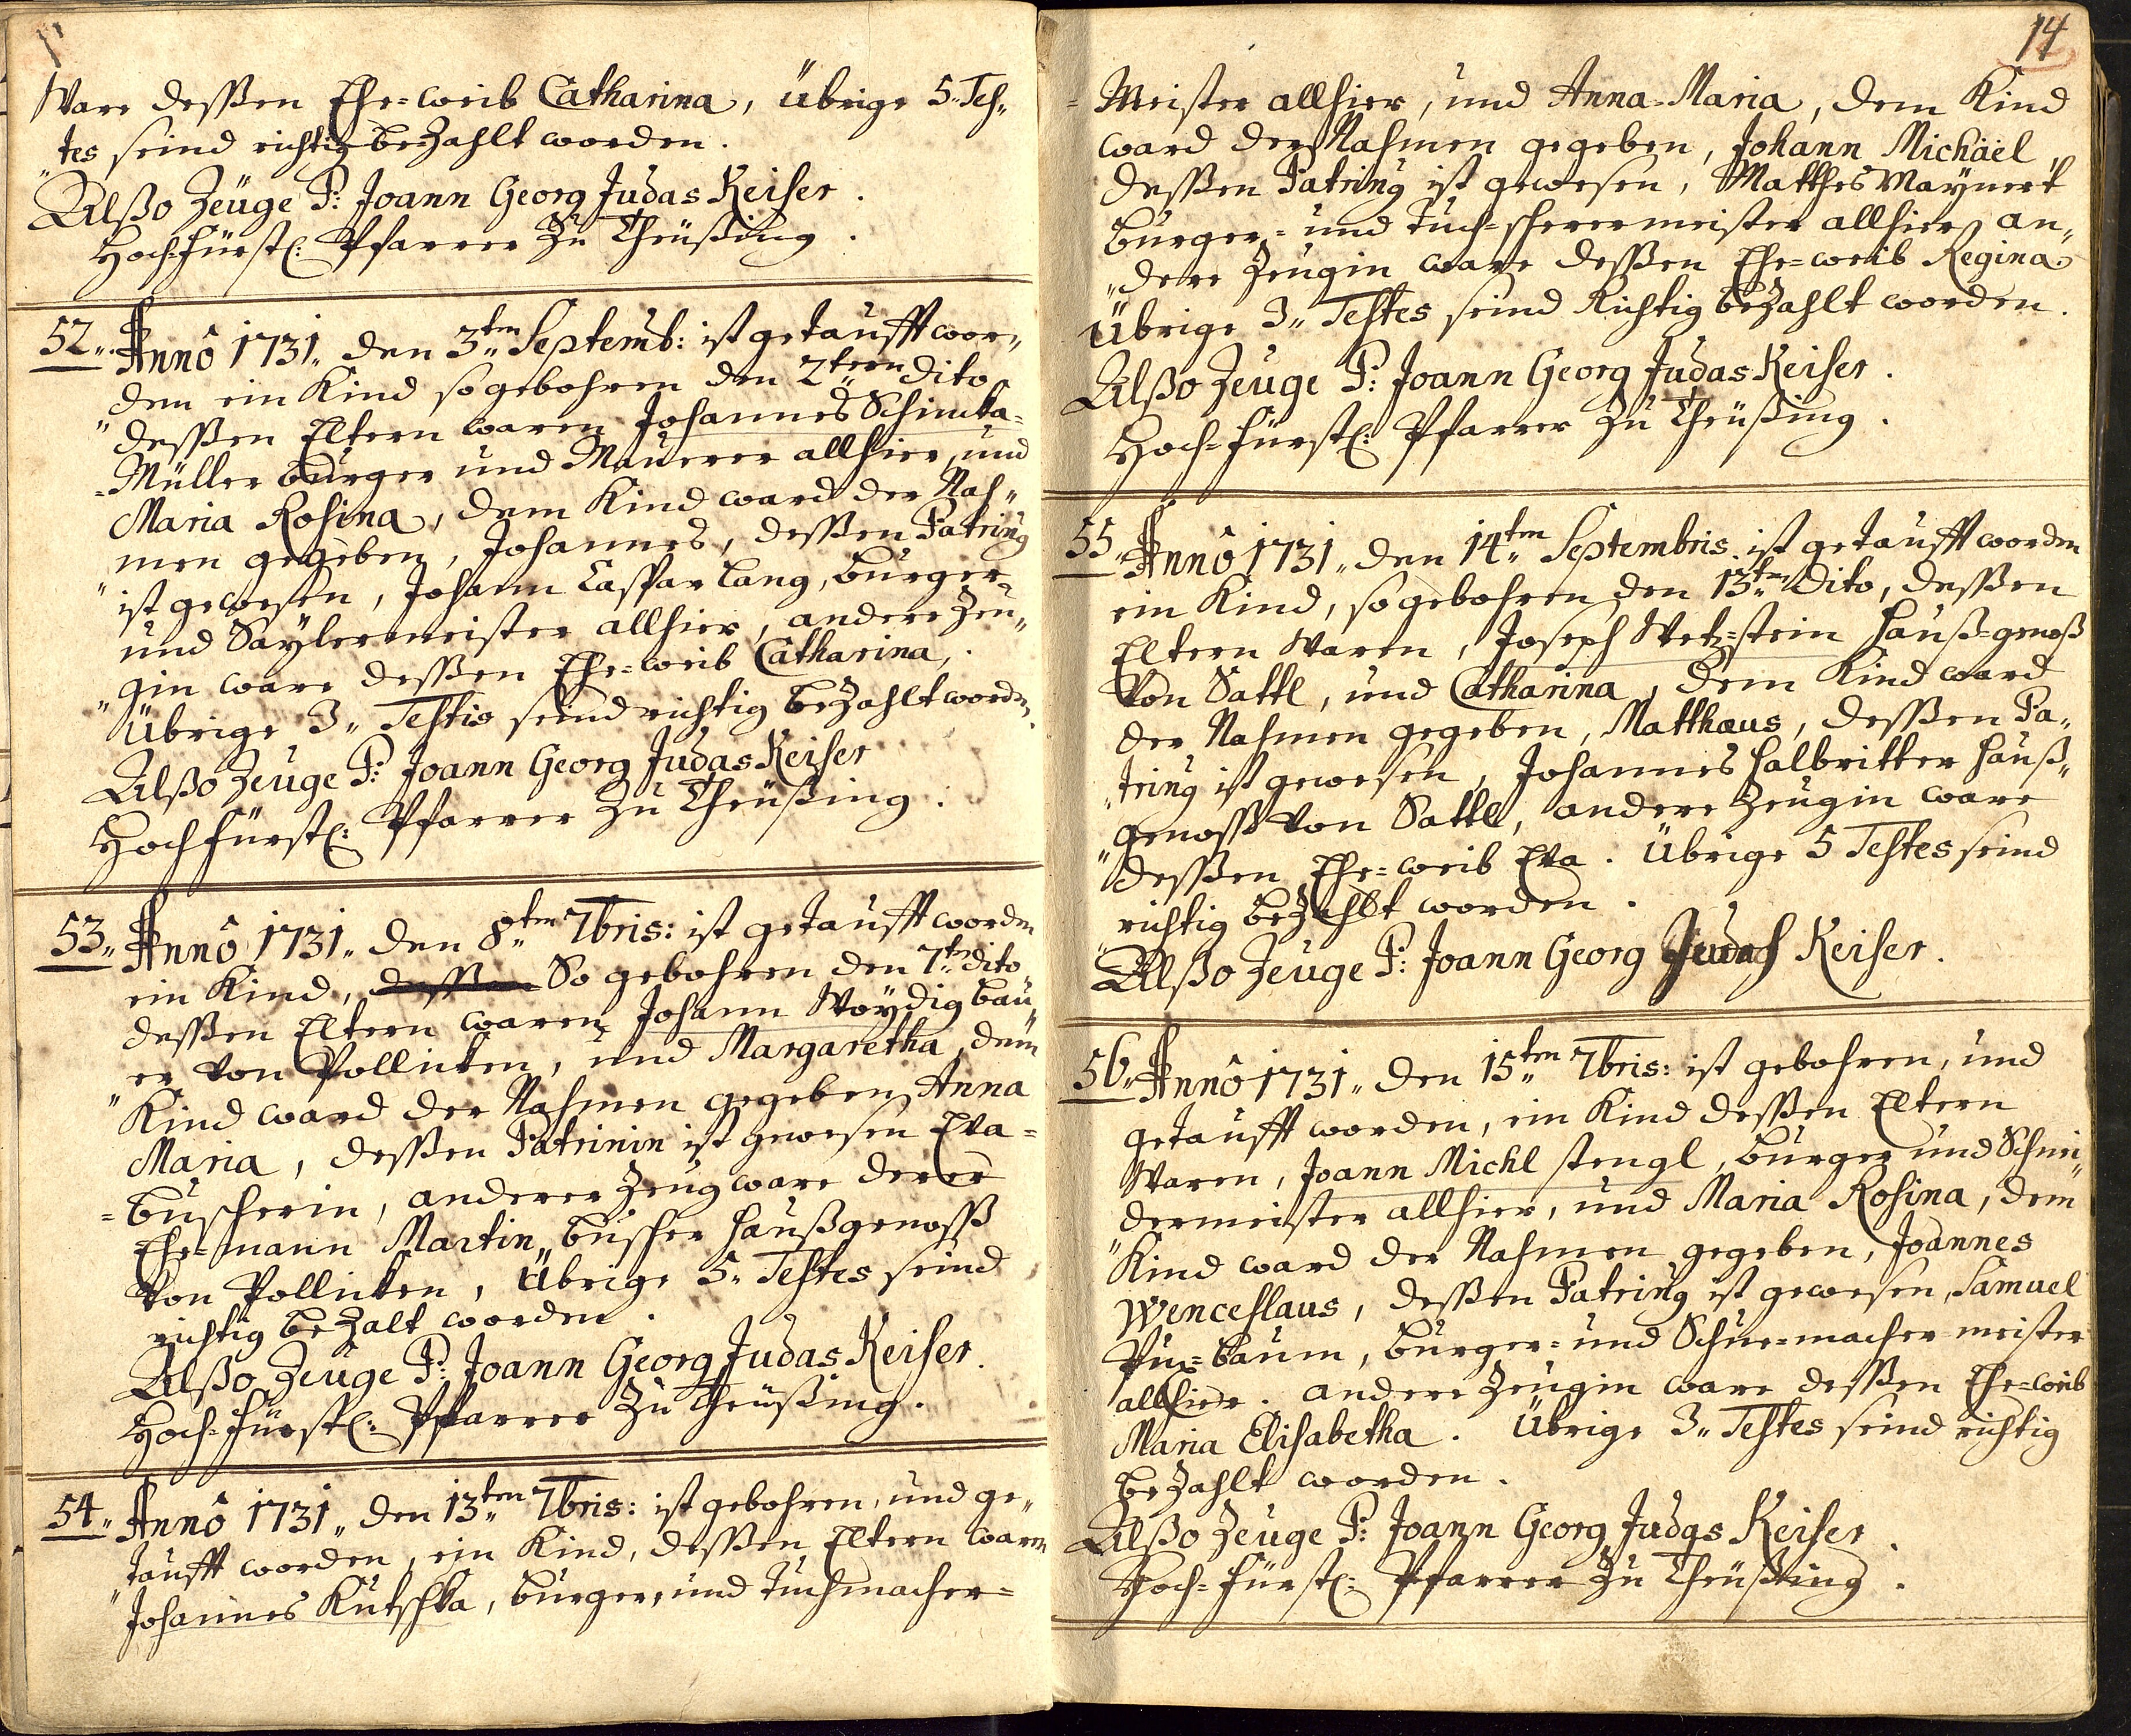 Ware deßen Ehe=weib Catharina, übrige 5. Tes„
„tes seind richtig bezahlt worden.
Alßo Zeüge P: Joann Georg Judas Keiser.
Hoch=fürstl: Pfarrer zu Theüßing.
52„ Annô 1731„ den 3„ten Septemb: ist getaufft wor„
„den ein Kind so gebohren den 2„teen dito
deßen Eltern waren Johannes Schimka=
=Müller burger und Maurer allhier, und
Maria Rosina, dem Kind ward der Nah„
„men gegeben, Johannes, deßen Patring
ist gewesen, Johann Caspar Lang, burger=
und Saylermeister allhier, andere Zeu„
„gin ware deßen Ehe=weib Catharina,
Übrige 3„ Testis seind richtig bezahlt worden.
Alßo Zeuge P: Joann Georg Judas Keiser
Hochfürstl: Pfarrer zu Theüßing.
53„ Annô 1731„ den 8„ten 7bris: ist getaufft worden
ein Kind, deßen So gebohren den 7„ten dito
deßen Eltern waren Johann Woydig bau„
„er von Pollicken, und Margaretha, dem
Kind ward der Nahmen gegeben Anna
Maria, deßen Patrinin ist gewesen Eva=
=buscherin, anderer Zeug ware derer
Ehe=mann Martin buscher haußgenoss
von Pollicken, Übrige 5„ Testes seind
richtig bezalt worden.
Alßo Zeüge P: Joann Georg Judas Keiser.
Hoch=fürstl: Pfarrer zu Theüßing.
54„ Annô 1731„ den 13„ten 7bris: ist gebohren, und ge„
„taufft worden, ein Kind, deßen Eltern waren
Johannes Kutschka, burger, und Tuchmacher=
14
=Meister allhier, und Anna=Maria, dem Kind
ward der Nahmen gegeben, Johann Michaël,
deßen Patring ist gewesen, Matthes Maynert
burger=und Tuch=scherermeister allhier, an„
„dere Zeugin ware deßen Ehe=weib Regina.
Übrige 3„ Testes seind Richtig bezahlt worden.
Alßo Zeuge P: Joann Georg Judas Keiser.
Hoch=fürstl: Pfarrer zu Theüßing.
55„ Annô 1731„ den 14„ten Septembris. ist getaufft worden
ein Kind, so gebohren den 13„ten dito, deßen
Eltern Waren, Joseph Wetz=stein hauß=genoß
Von Sattl, und Catharina, dem Kind ward
der Nahmen gegeben, Matthaus, deßen Pa„
„tring ist gewesen, Johannes halbritter hauß„
„genoss von Sattl, andere Zeugin ware
deßen Ehe=weib Eva. Übrige 5 Testes seind
richtig bezahlt worden.
Alßo Zeuge P: Joann Georg Judas Keiser.
56„ Annô 1731„ den 15„ten 7bris: ist gebohren, und
getaufft worden, ein Kind deßen Eltern
Waren, Joann Michl stengl, burger und Schnei„
„dermeister allhier, und Maria Rosina, dem
Kind ward der Nahmen gegeben, Joannes
Wenceslaus, deßen Patring ist gewesen, Samuel
Pux=baum, burger=und Schue=macher meister
allhier. andere Zeugin ware deßen Ehe=weib
Maria Elisabetha. Übrige 3„ Testes seind richtig
bezahlt worden.
Alßo Zeuge P: Joann Georg Judas Keiser.
Hoch=fürstl: Pfarrer zu Theüßing.